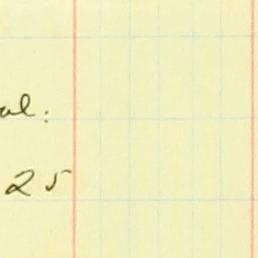 al:
25